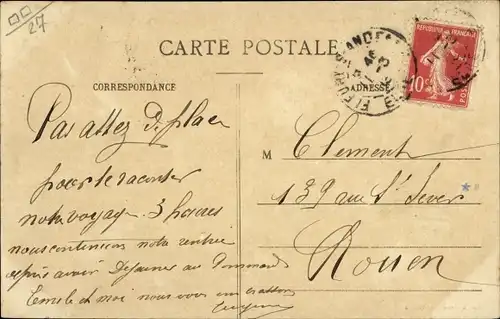 27
CARTE POSTALE
CORRESPONDANCE
ADRESSE
REPUBLIQUE FRANÇAISE
10
POSTES
FLEURY ANDELLE
Pas assez de place
pour te raconter
notre voyage 3 heures
nous continuons notre
après avoir Déjeuner au
Emile et moi nous vous
M Clement
139 rue St Sever
Rouen